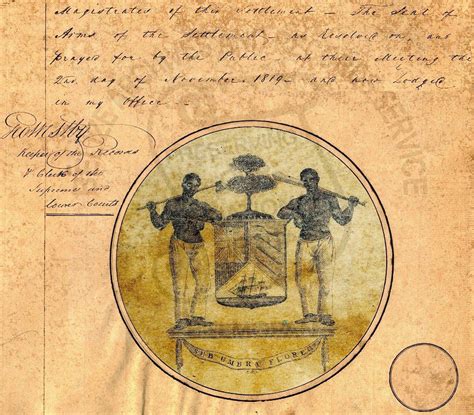 Magistrates of this Settlement – The Seal of
Arms of the Settlement – as Resolved on, and
prayed for by the Public – at their Meeting the
2nd day of November 1819 – and now Lodged
in my Office –
Keeper of the Records
& Clerk of the
Supreme and
Lower Courts
SUB UMBRA FLOREO
SERVICE